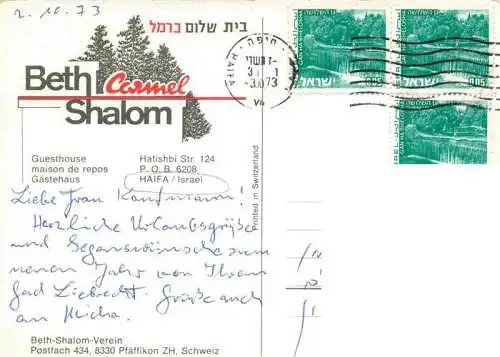 2. 10. 73
בית שלום כרמל
Beth Carmel
Shalom
Guesthouse
maison de repos
Gästehaus
Hatishbi Str. 124
P. O. B. 6208
HAIFA / Israel
Liebe Frau Kaufmann!
Herzliche Urlaubsgrüße
und Segenswünsche zum
neuen Jahr von Ihrem
Gad Liebrecht. Grüße auch
an Micha.
Beth-Shalom-Verein
Postfach 434, 8330 Pfäffikon ZH, Schweiz
Printed in Switzerland
חיפה
HAIFA
0.05
ישראל
0.05